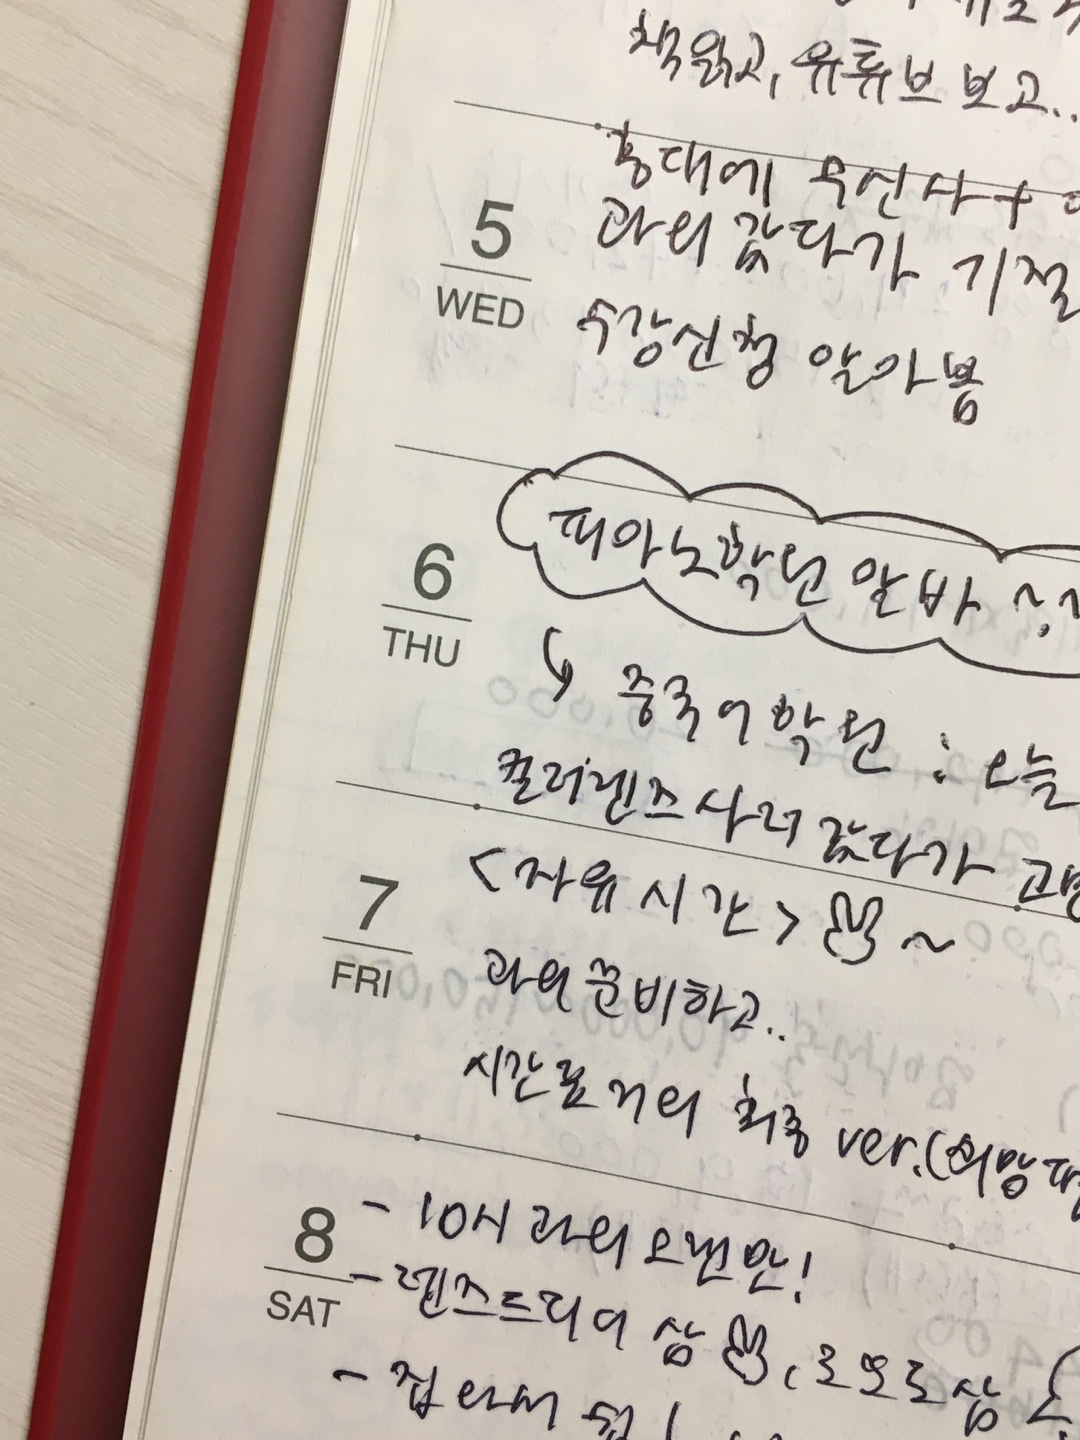 책읽고, 유튜브 보고..
홍대에 무신사 +
5
WED
과외 갔다가 기절
수강신청 알아봄
6
THU
피아노학원 알바
↳ 중국어학원 : 오늘
컬러렌즈 사러 갔다가
7
FRI
<자유시간> ~
과외준비하고..
시간표 거의 최종 ver.(희망
8
SAT
- 10시 과외 오랜만!
- 렌즈드디어 삼 , 로모로 삼
- 집 와서